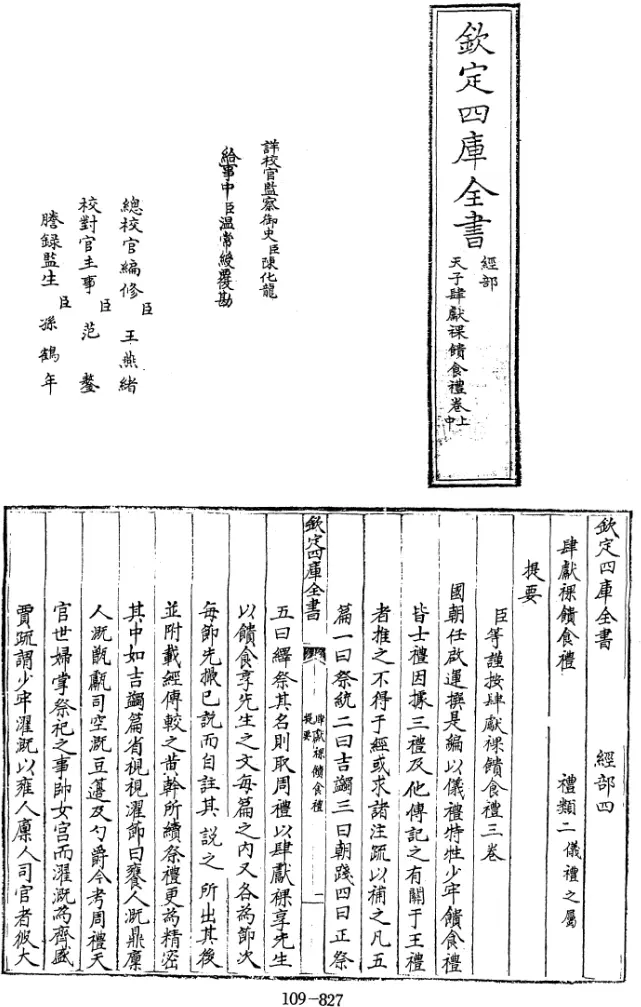 欽定四庫全書
經部
天子肆獻祼饋食禮卷上中
詳校官監察御史臣陳化龍
給事中臣溫常綬覆勘
總校官編修臣王燕緒
校對官主事臣范鏊
謄錄監生臣孫鶴年
欽定四庫全書 經部四
肆獻祼饋食禮 禮類二儀禮之屬
提要
臣等謹按肆獻祼饋食禮三卷
國朝任啟運撰是編以儀禮特牲少牢饋食禮
皆士禮因據三禮及他傳記之有關于王禮
者推之不得于經或求諸注疏以補之凡五
篇一曰祭統二曰吉蠲三曰朝踐四曰正祭
欽定四庫全書 肆獻祼饋食禮 提要 一
五曰繹祭其名則取周禮以肆獻祼享先生
以饋食享先生之文每篇之内又各為節次
每節先撒已説而自註其説之所出其後
並附載經傳較之黄幹所續祭禮更為精密
其中如吉蠲篇省視視濯節曰饔人溉鼎廩
人溉甑甗司空溉豆籩及勺爵今考周禮天
官世婦掌祭祀之事帥女官而濯溉為齊盛
賈疏謂少牢濯溉以雍人廪人司官者彼大
109-827